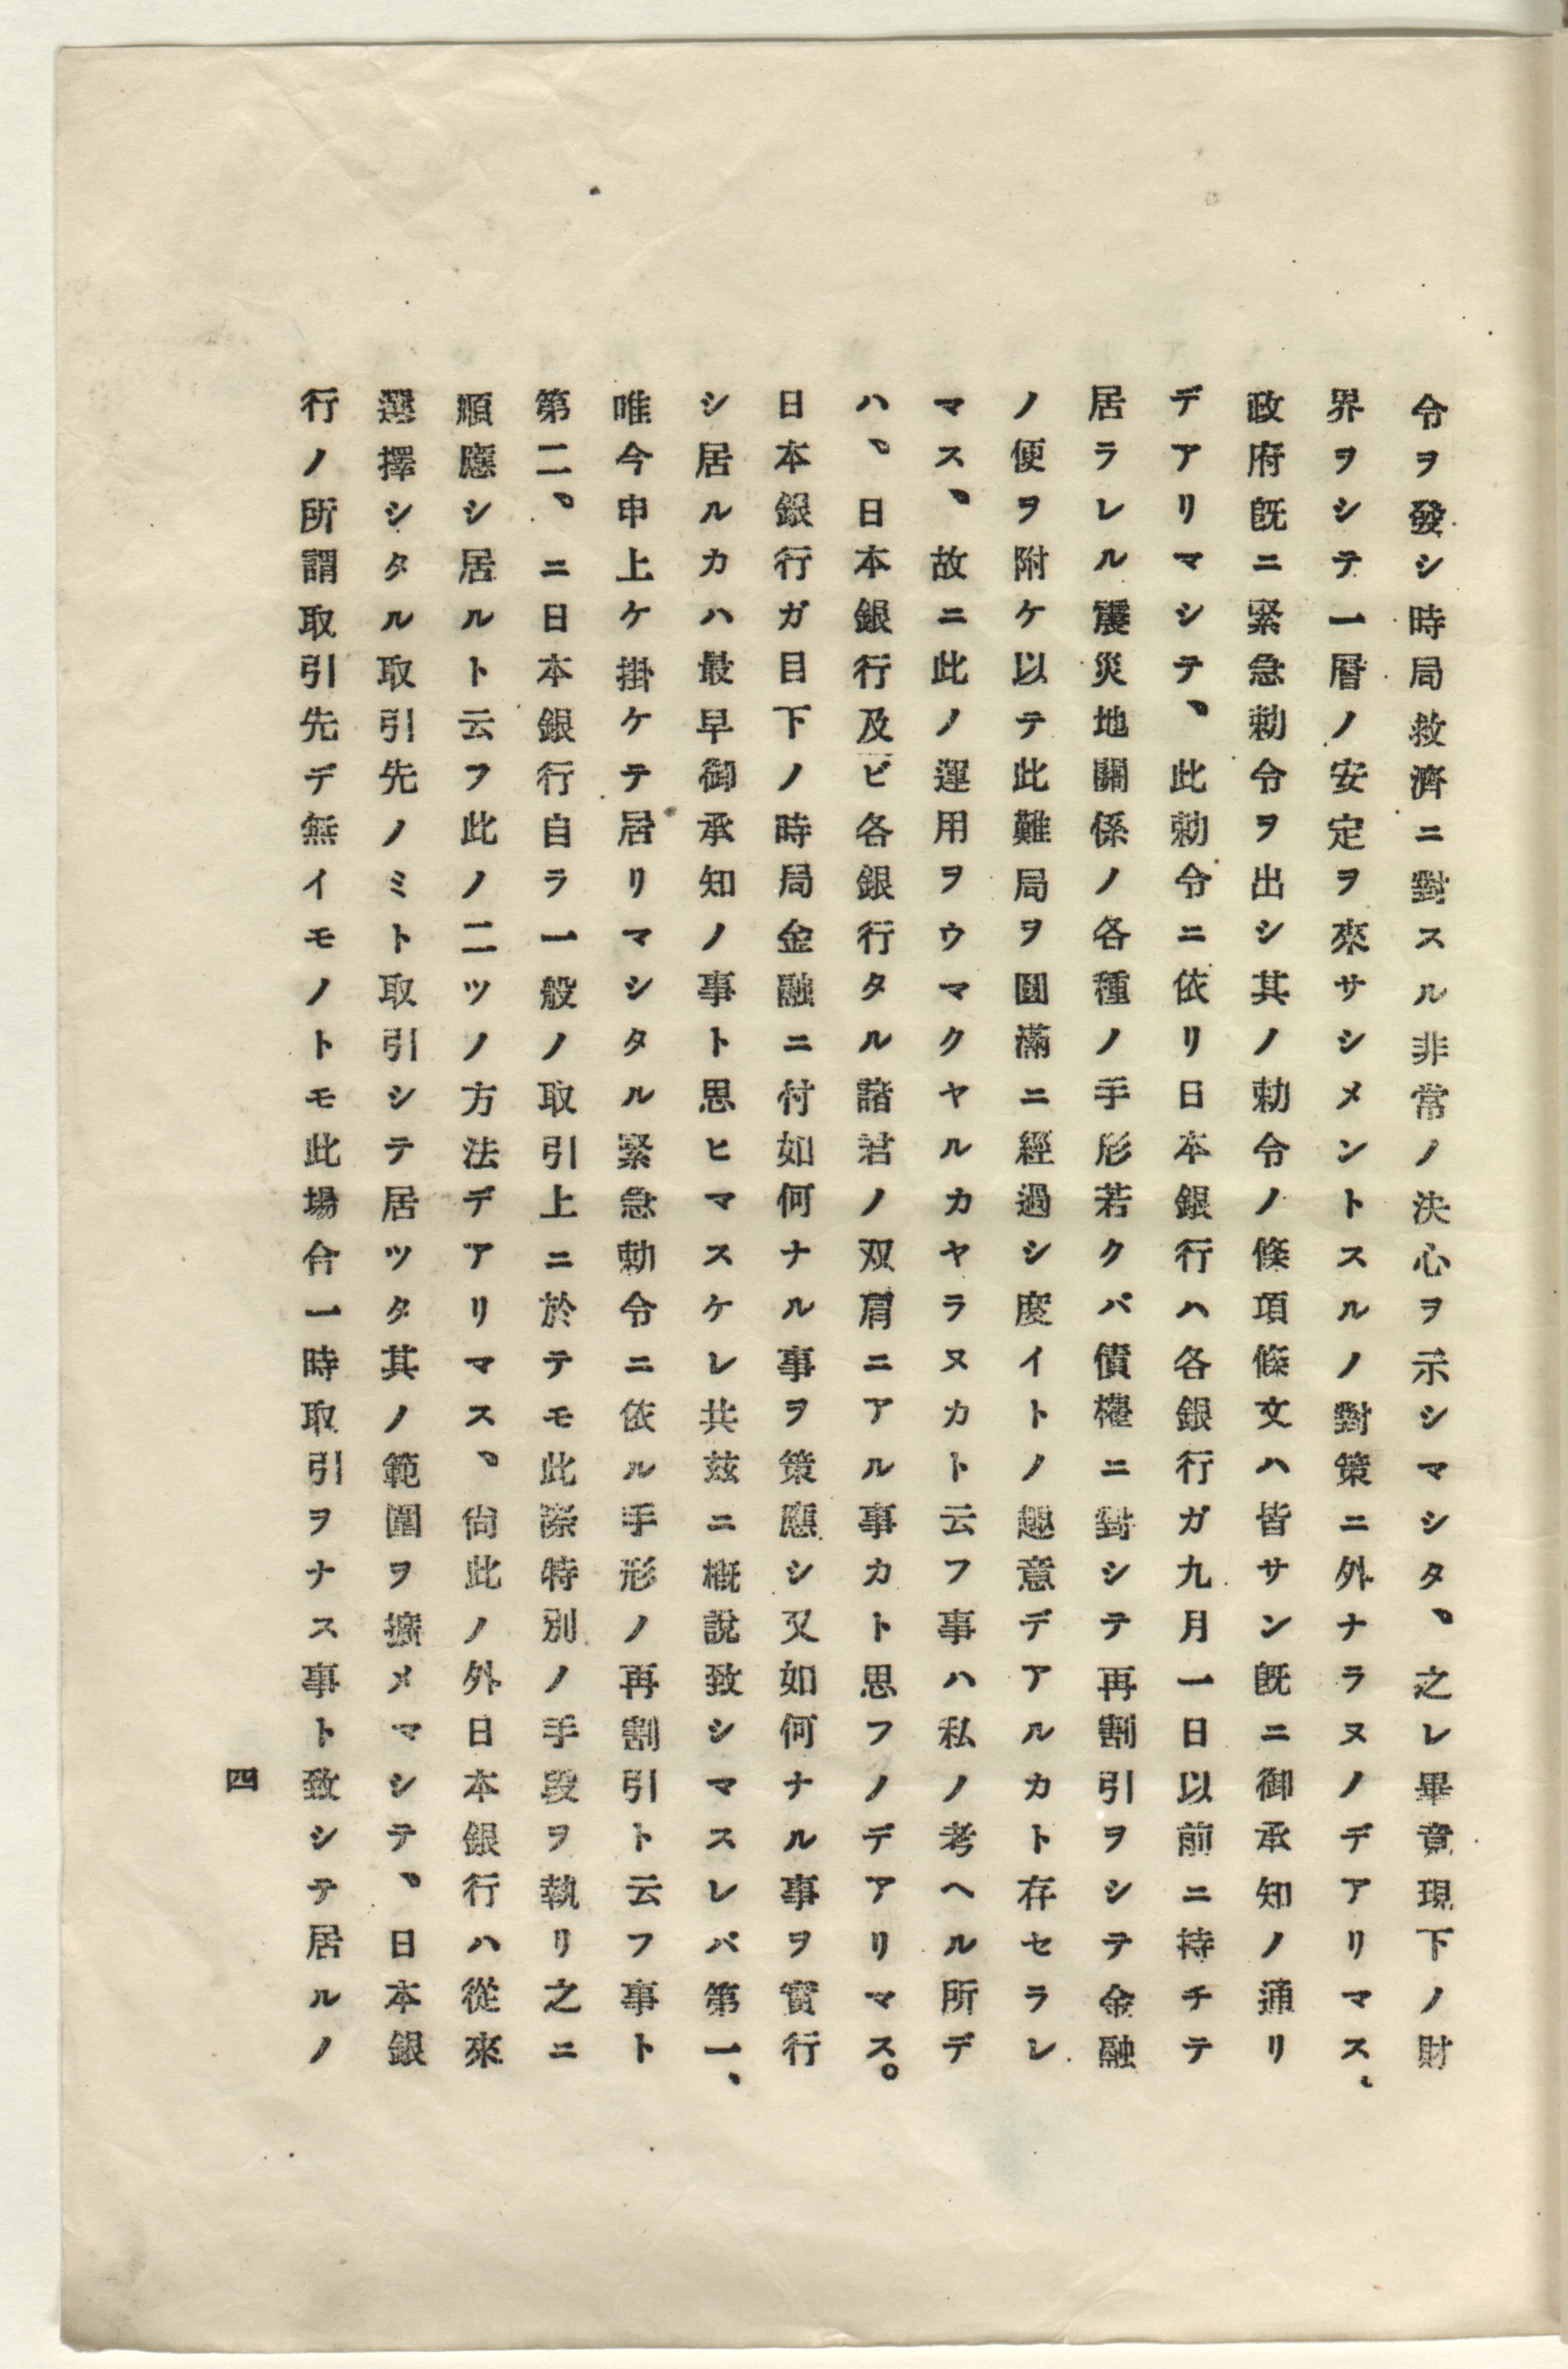 令ヲ發シ時局救濟ニ對スル非常ノ決心ヲ示シマシタ、之レ畢竟現下ノ財
界ヲシテ一層ノ安定ヲ來サシメントスルノ對策ニ外ナラヌノデアリマス、
政府既ニ緊急勅令ヲ出シ其ノ勅令ノ條項條文ハ皆サン既ニ御承知ノ通リ
デアリマシテ、此勅令ニ依リ日本銀行ハ各銀行ガ九月一日以前ニ持チテ
居ラレル震災地關係ノ各種ノ手形若クバ債權ニ對シテ再割引ヲシテ金融
ノ便ヲ附ケ以テ此難局ヲ圓滿ニ經過シ度イトノ趣意デアルカト存セラレ
マス、故ニ此ノ運用ヲウマクヤルカヤラヌカト云フ事ハ私ノ考ヘル所デ
ハ、日本銀行及ビ各銀行タル諸君ノ双肩ニアル事カト思フノデアリマス。
日本銀行ガ目下ノ時局金融ニ付如何ナル事ヲ策應シ又如何ナル事ヲ實行
シ居ルカハ最早御承知ノ事ト思ヒマスケレ共玆ニ槪說致シマスレバ第一、
唯今申上ケ掛ケテ居リマシタル緊急勅令ニ依ル手形ノ再割引ト云フ事ト
第二、ニ日本銀行自ラ一般ノ取引上ニ於テモ此際特別ノ手段ヲ執リ之ニ
順應シ居ルト云フ此ノ二ツノ方法デアリマス、尙此ノ外日本銀行ハ從來
選擇シタル取引先ノミト取引シテ居ツタ其ノ範圍ヲ擴メマシテ、日本銀
行ノ所謂取引先デ無イモノトモ此場合一時取引ヲナス事ト致シテ居ルノ
四